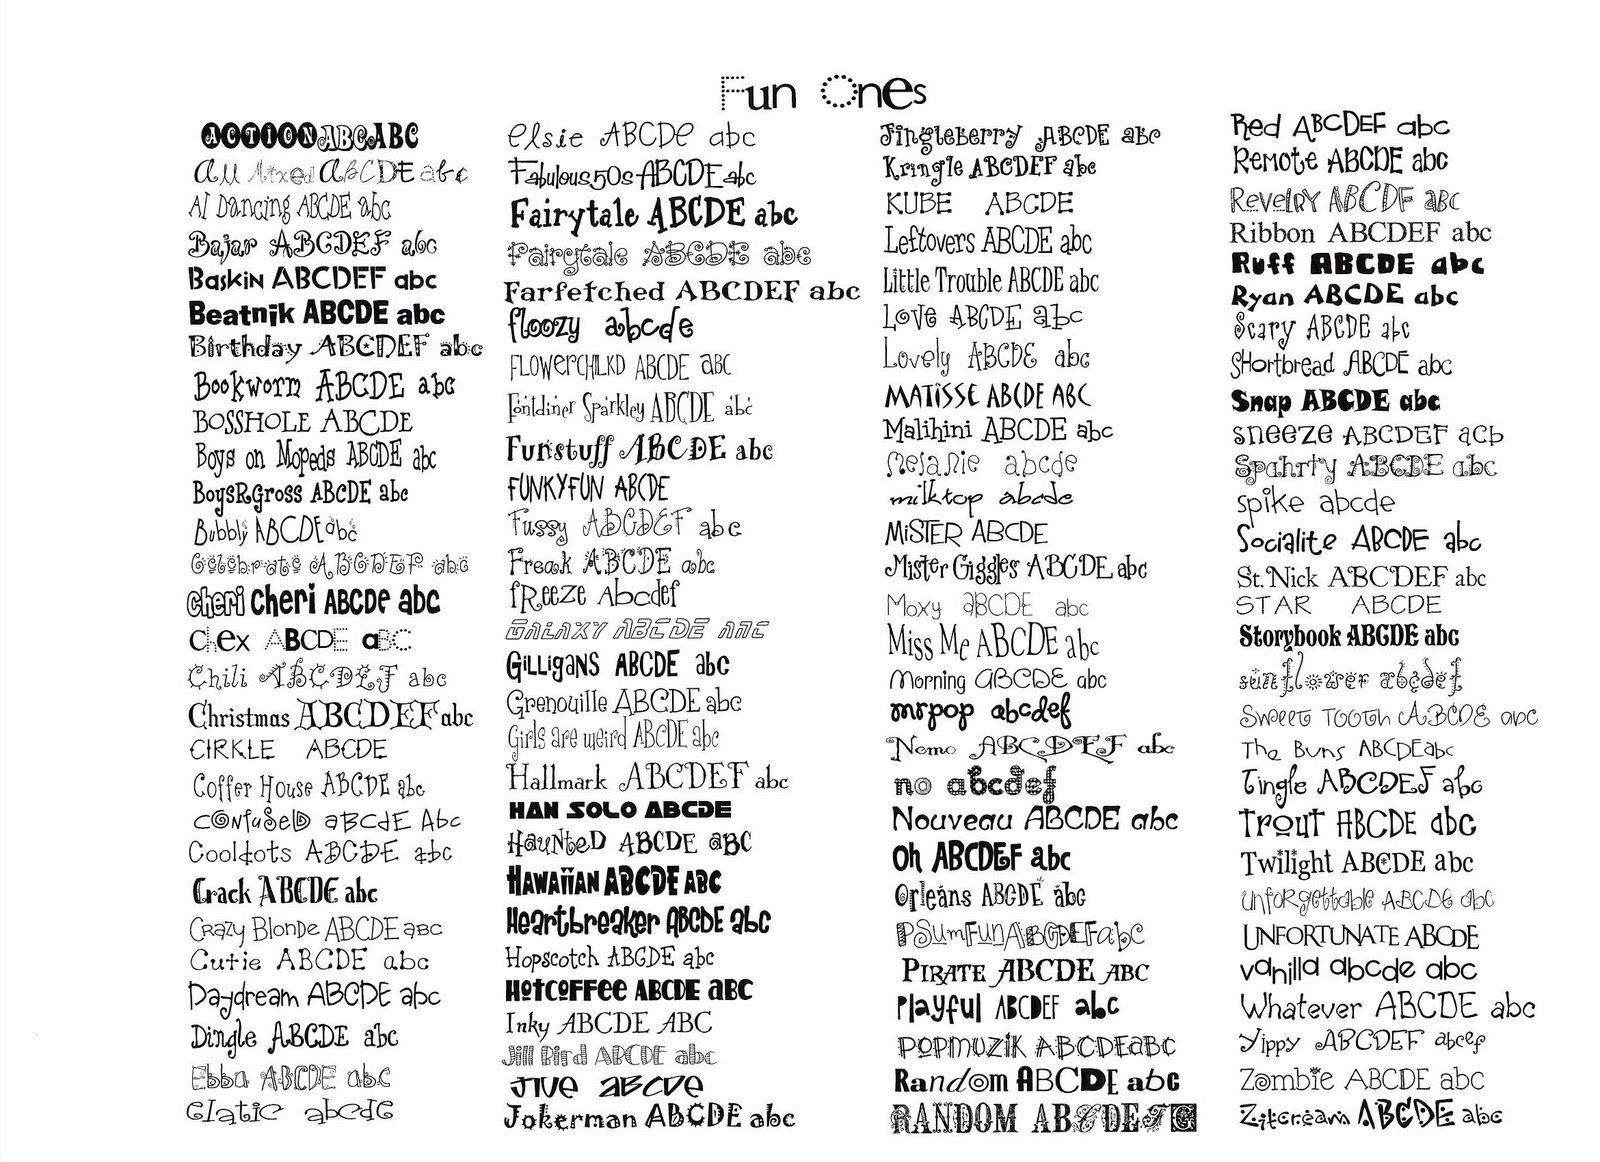 Fun Ones
ACTION ABC ABC
All Mixed ABCDE abc
Al Dancing ABCDE abc
Bajar ABCDEF abc
Baskin ABCDEF abc
Beatnik ABCDE abc
Birthday ABCDEF abc
Bookworm ABCDE abc
BOSSHOLE ABCDE
Boys on Mopeds ABCDE abc
BoysRGross ABCDE abc
Bubbly ABCDEabc
Celebrate ABCDEF abc
Cheri Cheri ABCDE abc
Chex ABCDE aBC
Chili ABCDEF abc
Christmas ABCDEF abc
CIRKLE ABCDE
Coffer House ABCDE abc
CONfuSeD aBCdE Abc
Cooldots ABCDE abc
Crack ABCDE abc
Crazy Blonde ABCDE ABC
Cutie ABCDE abc
Daydream ABCDE abc
Dingle ABCDE abc
Ebba ABCDE abc
elatic abcde
elsie ABCDe abc
Fabulous50s ABCDE abc
Fairytale ABCDE abc
Fairytale ABCDE abc
Farfetched ABCDEF abc
floozy abcde
FLOWERCHILKD ABCDE aBC
Fontdiner Sparkley ABCDE abc
Funstuff ABCDE abc
FUNKYFUN ABCDE
Fussy ABCDEF abc
Freak ABCDE abc
fReeze Abcdef
GALAXY ABCDE ABC
GiLLigaNS ABCDE abC
Grenouille ABCDE abc
Girls are weird ABCDE abc
Hallmark ABCDEF abc
HAN SOLO ABCDE
HauNteD ABCDE aBC
HAWAIIAN ABCDE ABC
Heartbreaker ABCDE abc
Hopscotch ABCDE abc
HOtCOFFee ABCDE aBC
Inky ABCDE ABC
Jill Bird ABCDE abc
JIVE ABCDE
Jokerman ABCDE abc
Jingleberry ABCDE abc
Kringle ABCDEF abc
KUBE ABCDE
Leftovers ABCDE abc
Little Trouble ABCDE abc
Love ABCDE abc
Lovely ABCDE abc
MATiSSE ABCDE ABC
Malihini ABCDE abc
Melanie abcde
milktop abcde
MiSTER ABCDE
Mister Giggles ABCDE abc
Moxy aBCDE abc
Miss Me ABCDE abc
Morning ABCDE abc
mrpop abcdef
Nemo ABCDEF abc
no abcdef
Nouveau ABCDE abc
Oh ABCDEF abc
Orleans ABCDE abc
PSumFunABCDEFabc
PIRATE ABCDE ABC
Playful ABCDEF abc
POPMUZIK ABCDEaBC
Random ABCDE abc
RANDOM ABCDEFG
Red ABCDEF abc
Remote ABCDE abc
RevelRY ABCDF aBC
Ribbon ABCDEF abc
Ruff ABCDE abc
Ryan ABCDE abc
Scary ABCDE abc
SHortbread ABCDE abc
Snap ABCDE abc
sneeze ABCDEF acb
Spahrty ABCDE abc
spike abcde
Socialite ABCDE abc
St.Nick ABCDEF abc
STAR ABCDE
Storybook ABCDE abc
sunflower abcdef
Sweet Tooth ABCDE abc
The Buns ABCDEabc
Tingle ABCDEF abc
Trout ABCDE abc
Twilight ABCDE abc
unforgettable ABCDE abc
UNFORTUNATE ABCDE
vanilla abcde abc
Whatever ABCDE abc
Yippy ABCDEF abcef
Zombie ABCDE abc
Zitcream ABCDE abc